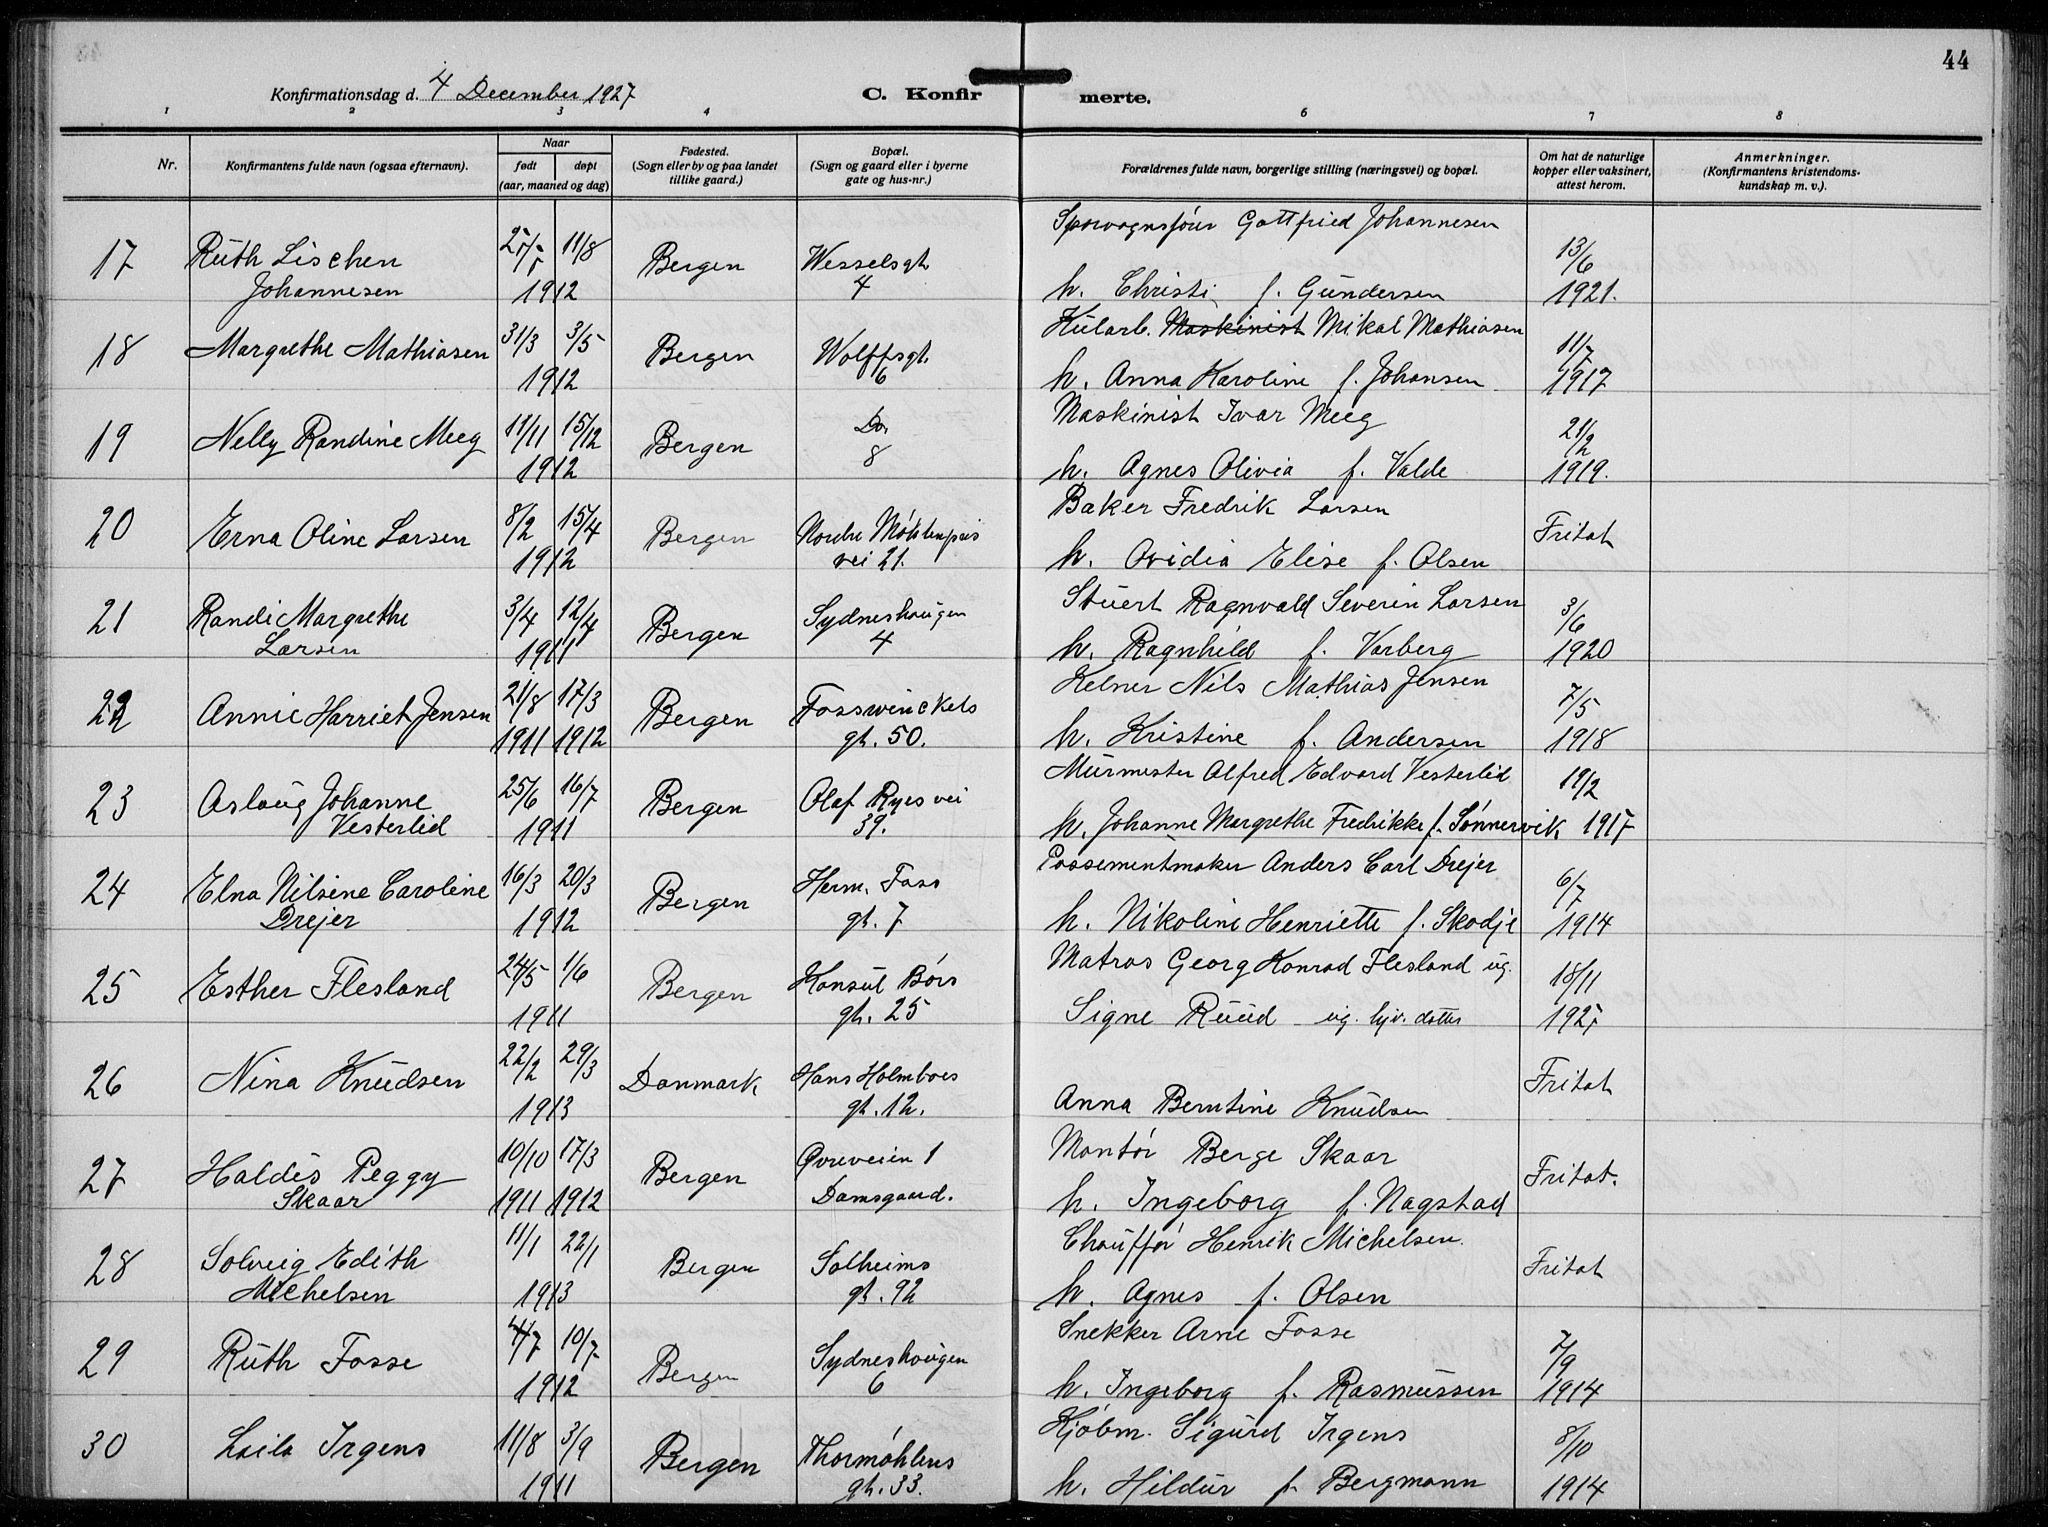 44
Konfirmationsdag d. 4 December 1927
C. Konfir
merte.
1 2 3 4 6 7 8
Nr.
Konfirmantens fulde navn (ogsaa efternavn).
Naar
født døpt
(aar, maaned og dag)
Fødested.
(Sogn eller by og paa landet
tillike gaard.)
Bopæl.
(Sogn og gaard eller i byerne
gate og hus-nr.)
Forældrenes fulde navn, borgerlige stilling (næringsvei) og bopæl.
Om hat de naturlige
kopper eller vaksinert,
attest herom.
Anmerkninger.
(Konfirmantens kristendoms-
kundskap m. v.).
Sporvognsfører Gottfried Johannesen
17 Ruth Lischen 11/8 Bergen Wesselsgt. 13/6
Johannesen 1912 4 h. Christi f. Gundersen 1921.
Kularb. Maskinist Mikal Mathiasen
18 Margrethe Mathiasen 31/3 3/5 Bergen Wolffsgt. 11/7
1912 6 h. Anna Karoline f. Johansen 1917
Maskinist Ivar Meeg
19 Nelly Randine Meeg 11/11 15/12 Bergen Do. 21/2
1912 8 h. Agnes Olivia f. Valde 1919.
Baker Fredrik Larsen
20 Erna Oline Larsen 8/2 15/4 Bergen Nordre Møhlenpris Fritat
1912 vei 21. h. Ovidia Elise f. Olsen
Stuert Ragnvald Severin Larsen
21 Randi Margrethe 3/4 12/4 Bergen Sydneshaugen 3/6
Larsen 1911 4 h. Ragnhild f. Varberg 1920
Kelner Nils Mathias Jensen
22 Annie Harriet Jensen 21/8 17/3 Bergen Fosswinckels 7/5
1911 1912 gt. 50. h. Kristine f. Andersen 1918
Murmester Alfred Edvard Vesterlid
23 Aslaug Johanne 25/6 16/7 Bergen Olaf Ryes vei 19/2
Vesterlid 1911 39. h. Johanne Margrethe Fredrikke f. Sønnervik 1917
Possementmaker Anders Carl Drejer
24 Elna Nilsine Caroline 16/3 20/3 Bergen Herm. Foss 6/7
Drejer 1912 gt. 7 h. Nikoline Henriette f. Skodje 1914
Matros Georg Konrad Flesland ug.
25 Esther Flesland 24/5 1/6 Bergen Konsul Børs 18/11
1911 gt. 25 Signe Ruud ug. hjv. datter 1927
26 Nina Knudsen 22/2 29/3 Danmark Hans Holmboes Fritat
1913 gt. 12. Anna Berntine Knudsen
Montør Berge Skaar
27 Haldis Peggy 10/10 17/3 Bergen Øvreveien 1 Fritat.
Skaar 1911 1912 Damsgaard. h. Ingeborg f. Nagstad
Chauffør Henrik Michelsen.
28 Solveig Edith 11/1 22/1 Bergen Solheims Fritat
Michelsen 1913 gt. 92 h. Agnes f. Olsen
Snekker Arne Fosse
29 Ruth Fosse 4/7 10/7 Bergen Sydneshaugen 7/9
1912 6 h. Ingeborg f. Rasmussen 1914
Kjøbm. Sigurd Irgens
30 Laila Irgens 11/8 3/9 Bergen Thormøhlens 8/10
1911 gt. 33. h. Hildur f. Bergmann 1914